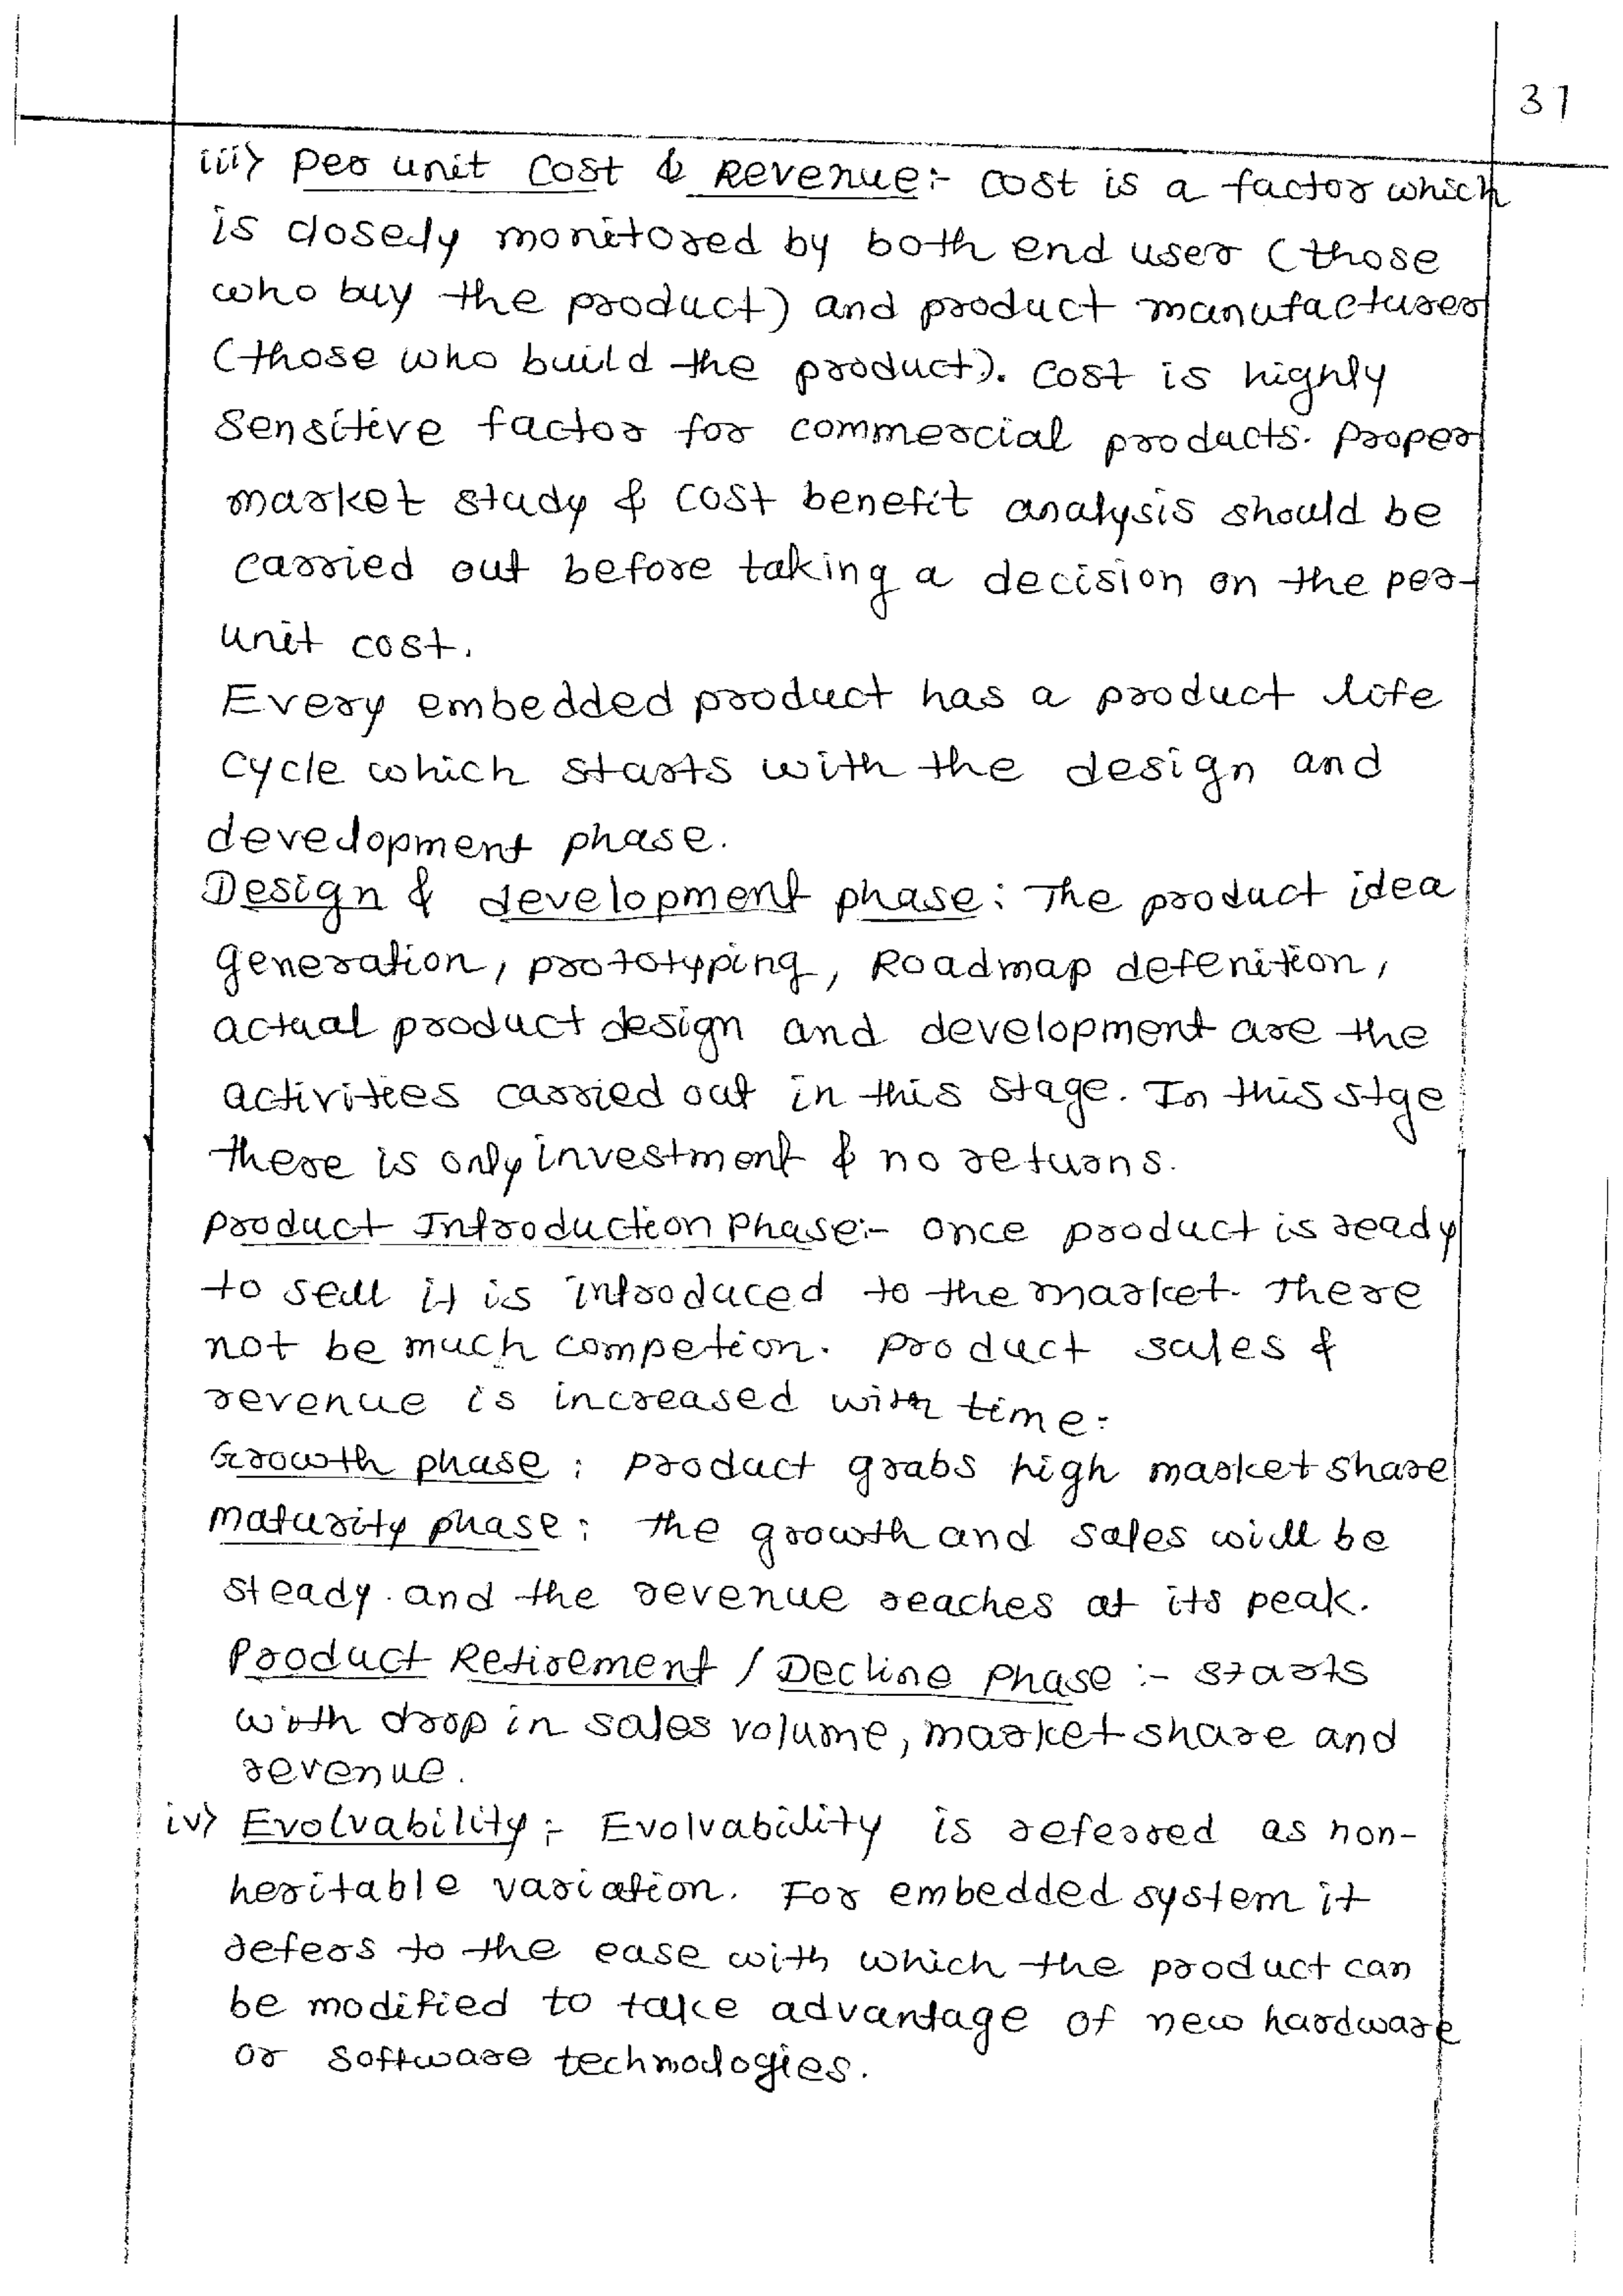 31
iii) Per unit cost & Revenue:- cost is a factor which
is closely monitored by both end user (those
who buy the product) and product manufacturer
(those who build the product). cost is highly
sensitive factor for commercial products. Proper
market study & cost benefit analysis should be
carried out before taking a decision on the per-
unit cost.
Every embedded product has a product life
cycle which starts with the design and
development phase.
Design & development phase: The product idea
generation, prototyping, Roadmap defenition,
actual product design and development are the
activities carried out in this stage. In this stge
there is only investment & no returns.
Product Introduction Phase:- once product is ready
to sell it is introduced to the market. There
not be much competion. Product sales &
revenue is increased with time.
Growth phase : Product grabs high market share
Maturity phase: The growth and sales will be
steady and the revenue reaches at its peak.
Product Retirement / Decline Phase :- starts
with drop in sales volume, market share and
revenue.
iv) Evolvability:- Evolvability is referred as non-
heritable variation. For embedded system it
refers to the ease with which the product can
be modified to take advantage of new hardware
or software technologies.